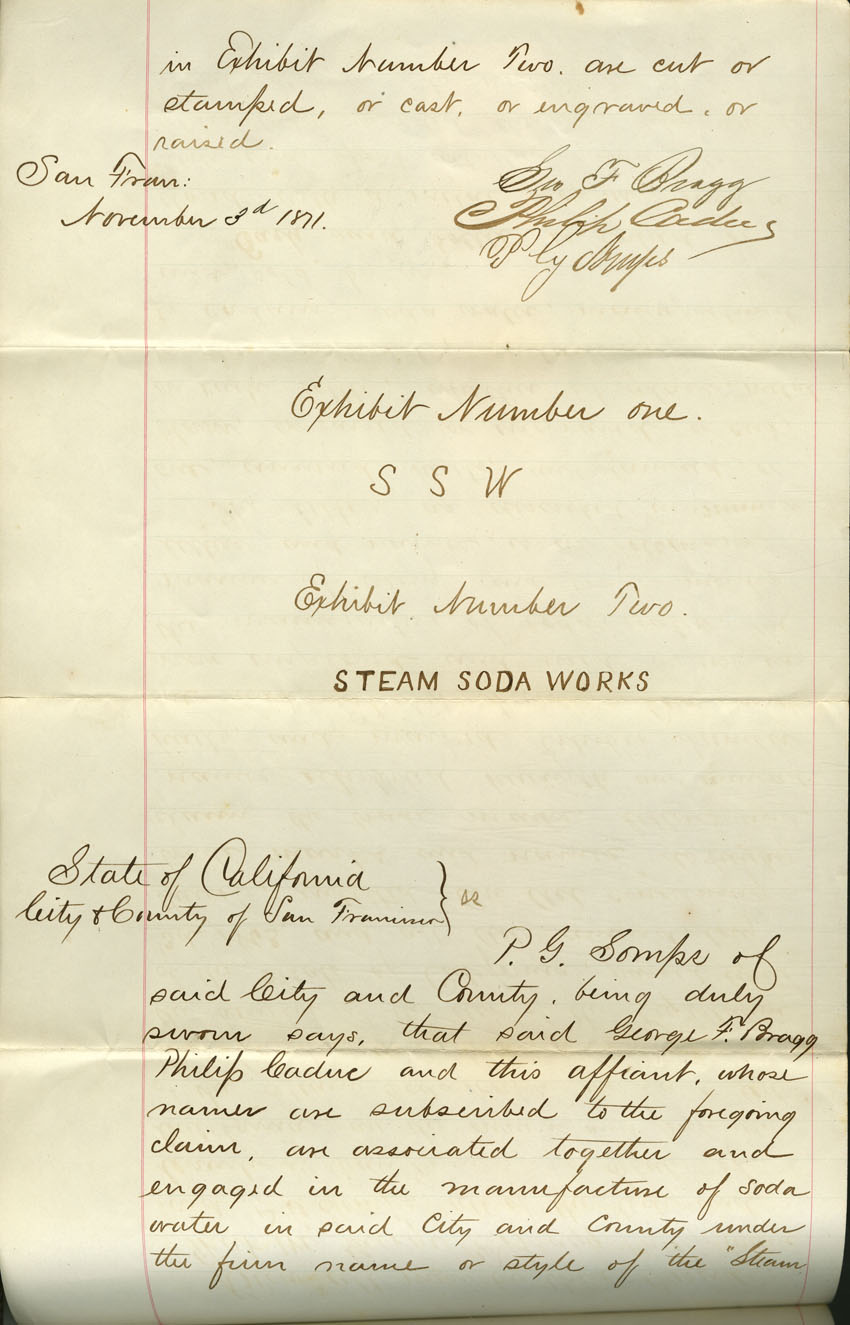 in Exhibit Number Two. are cut or
stamped, or cast, or engraved, or
raised.
San Fran:
November 3d 1871.
Geo F Bragg
Philip Caduc
P G Somps
Exhibit Number one.
S S W
Exhibit Number Two.
STEAM SODA WORKS
State of California
City & County of San Francisco } ss
P. G. Somps of
said City and County, being duly
sworn says, that said George F. Bragg
Philip Caduc and this affiant, whose
names are subscribed to the foregoing
claim, are associated together and
engaged in the manufacture of soda
water in said City and County under
the firm name or style of the "Steam